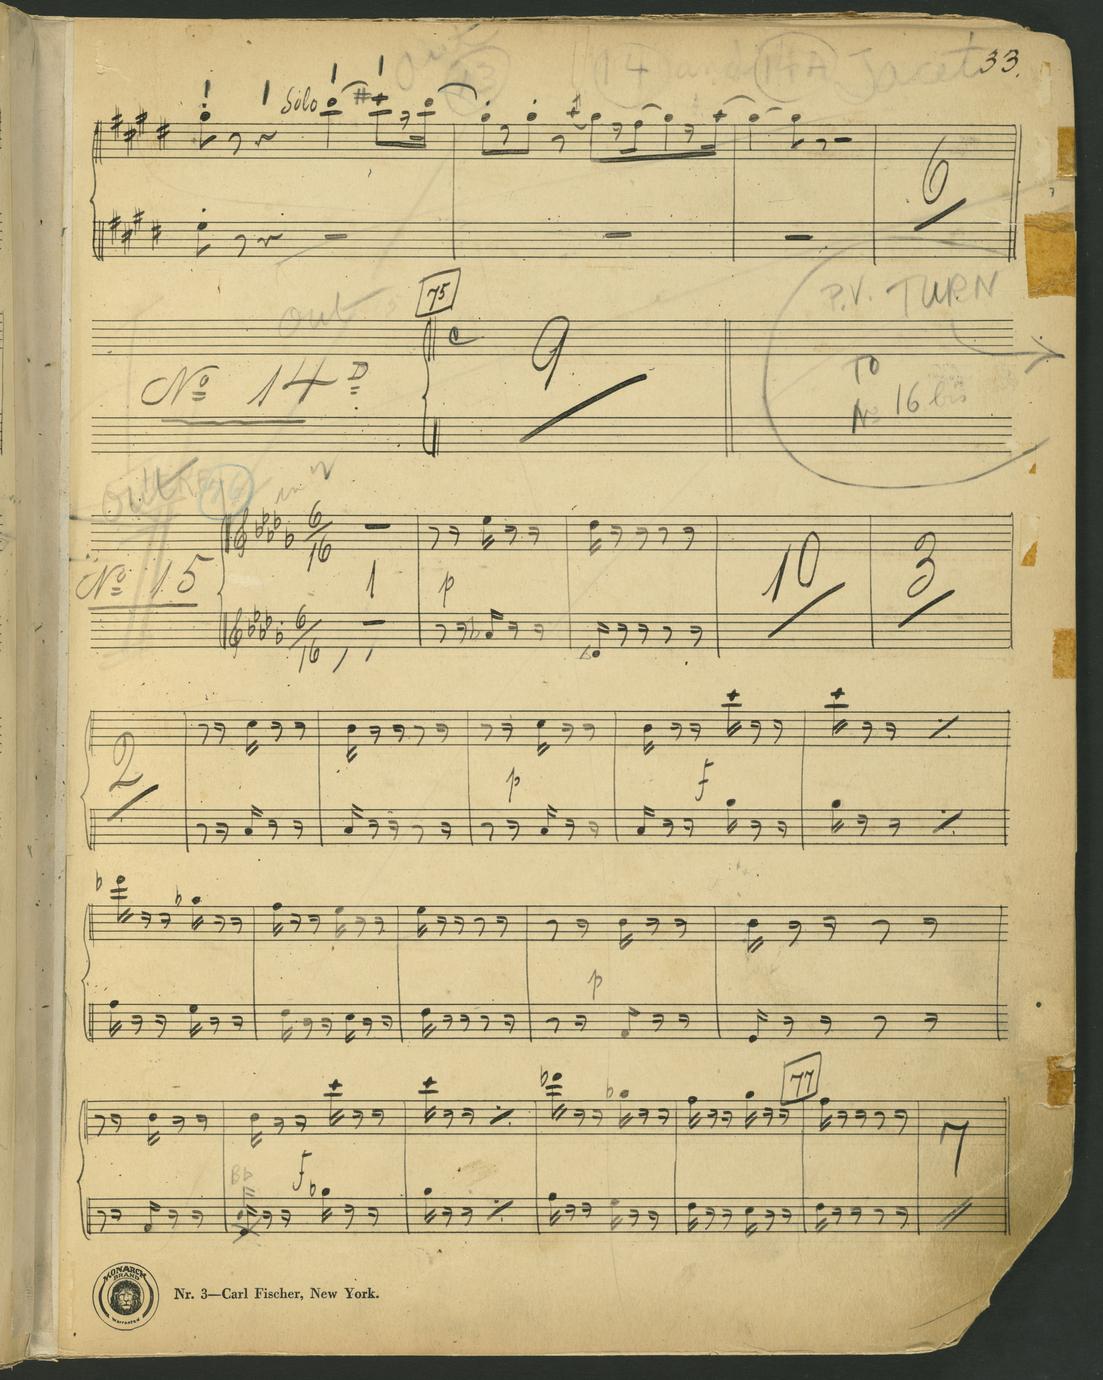 Out 13 14 and 14A Tacet 33.
Solo
6
75
out
P.V. TURN
No 14 D
C 9
TO
No 16 bis
in 2
No 15
6/16
1
p
10
3
6/16
2
p
f
p
77
7
Bb
f
MONARCH
BRAND
WARRANTED
Nr. 3—Carl Fischer, New York.